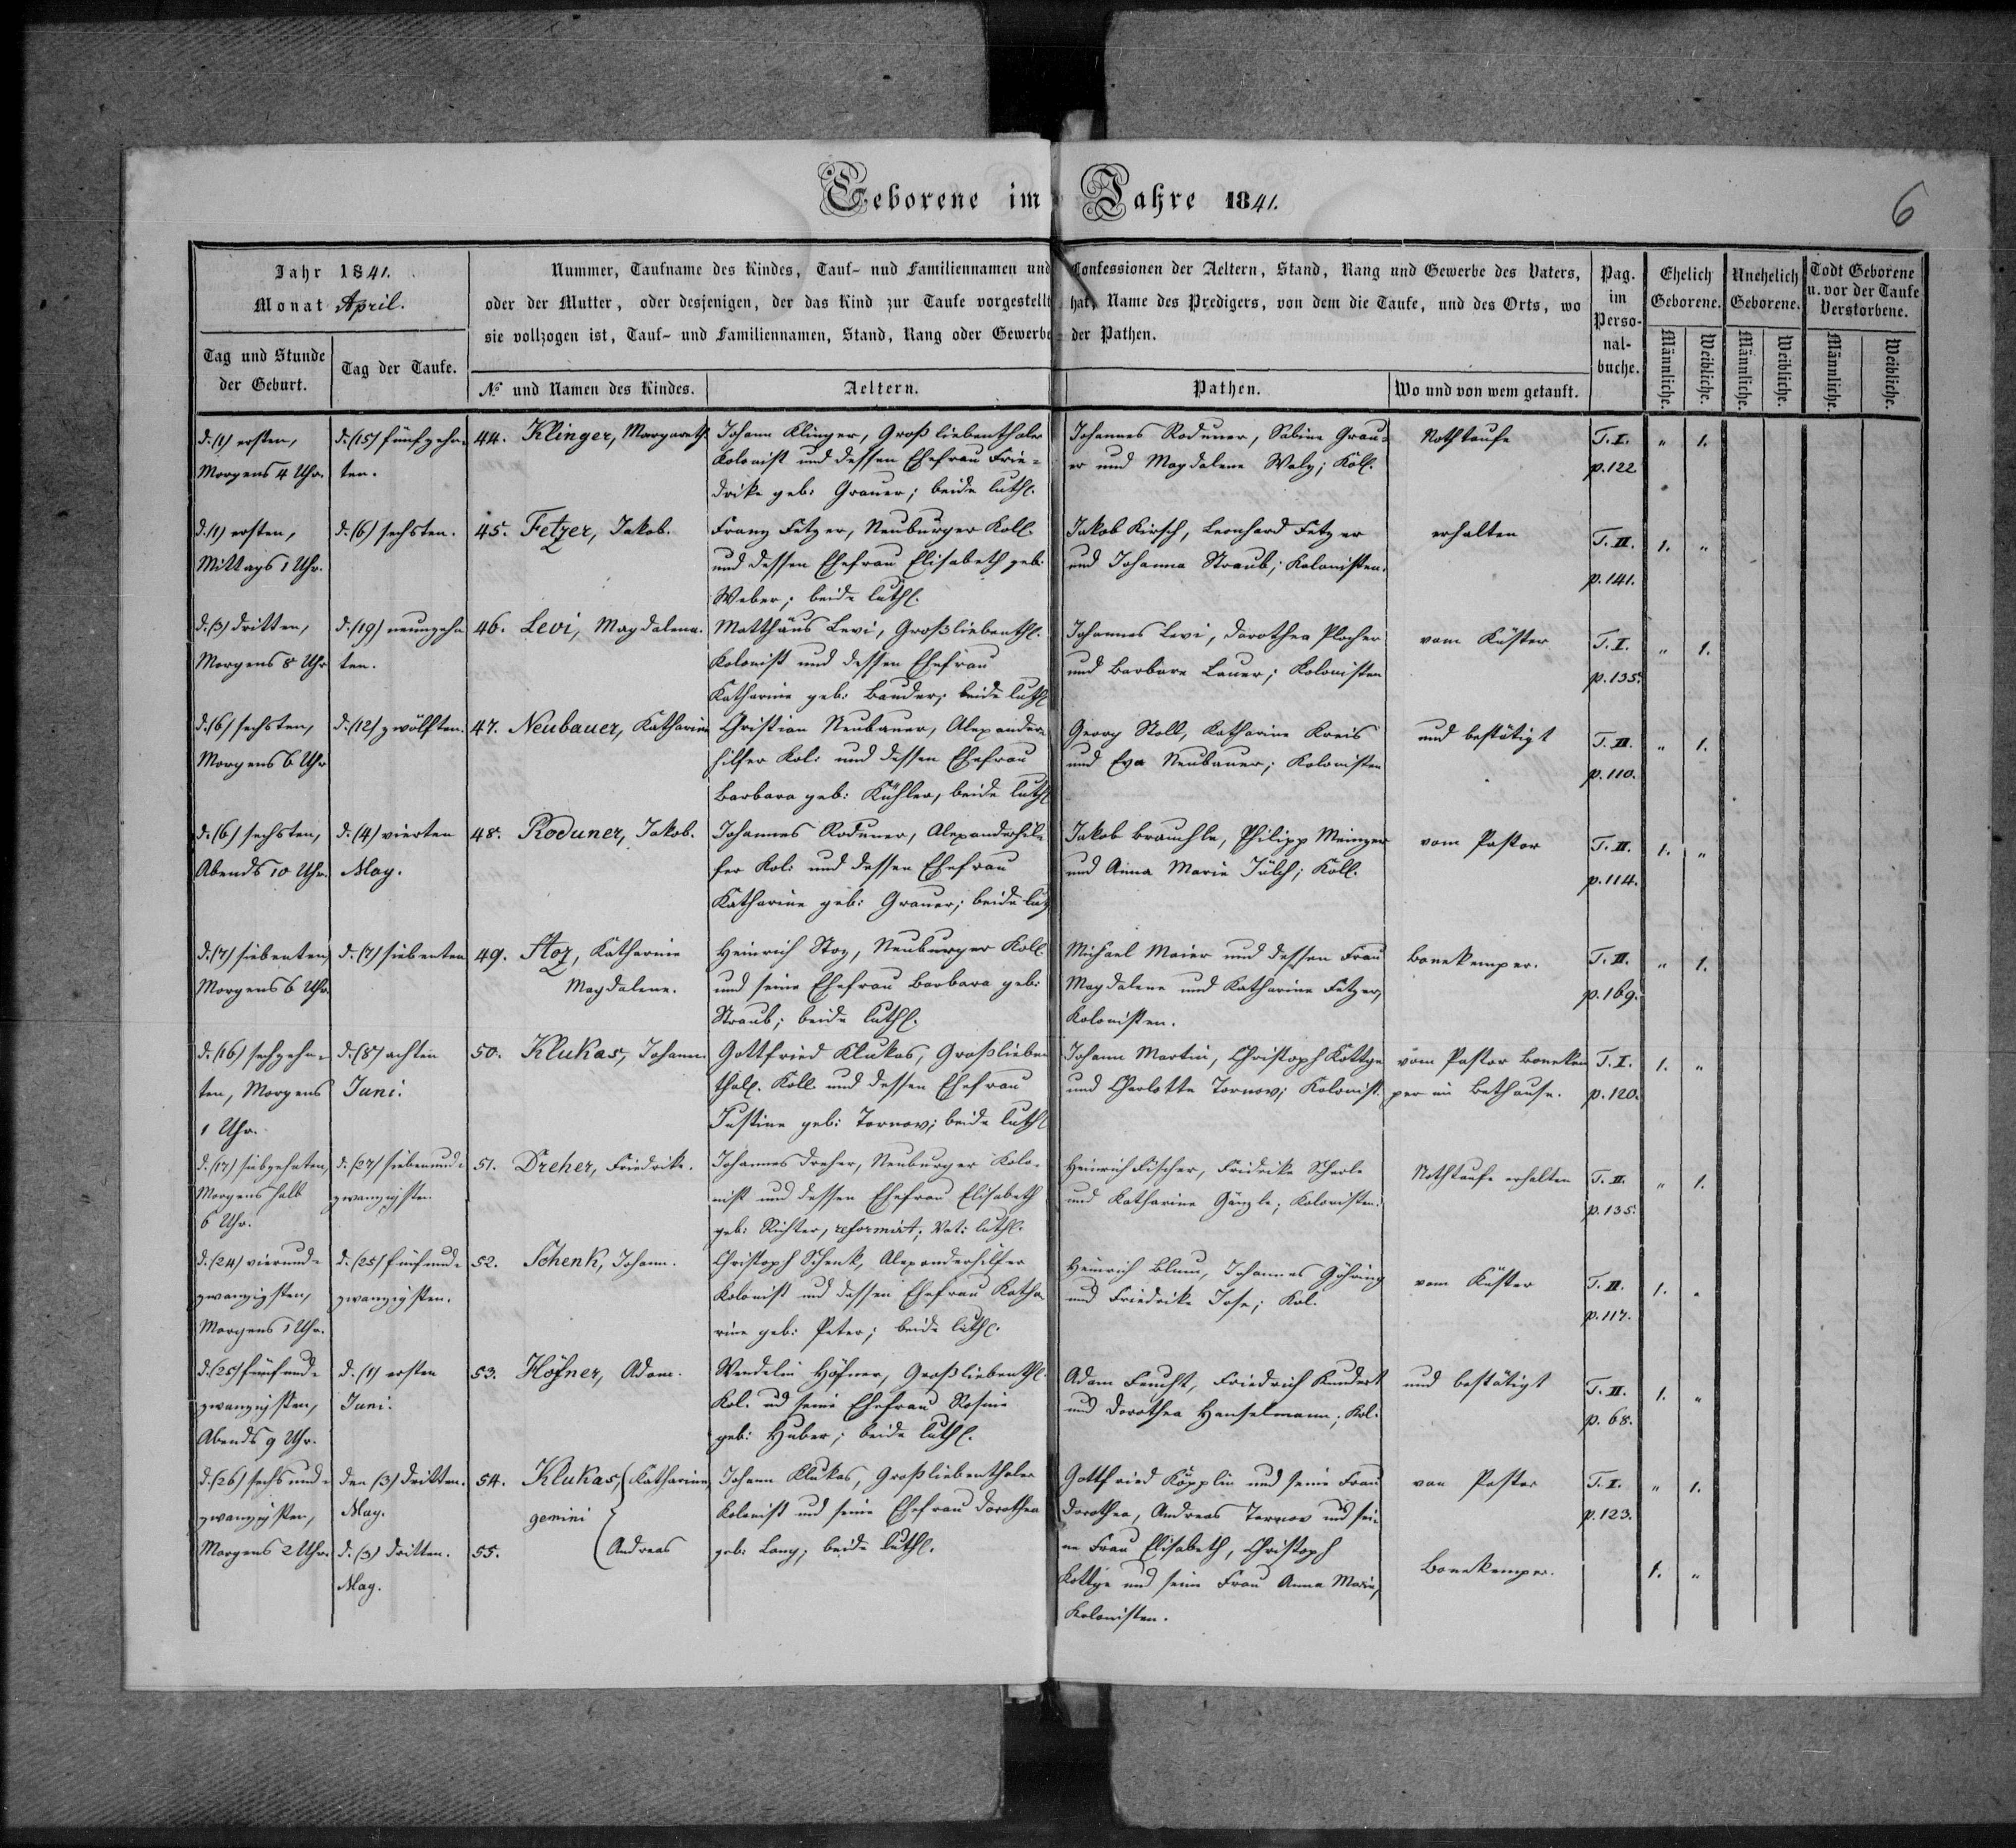 Geborene im Jahre 1841.
6
Jahr 1841.
Monat April.
Tag und Stunde der Geburt.
Tag der Taufe.
Nummer, Taufname des Kindes, Tauf- und Familiennamen und Confessionen der Aeltern, Stand, Rang und Gewerbe des Vaters,
oder der Mutter, oder desjenigen, der das Kind zur Taufe vorgestellt hat, Name des Predigers, von dem die Taufe, und des Orts, wo
sie vollzogen ist, Tauf- und Familiennamen, Stand, Rang oder Gewerbe der Pathen.
№ und Namen des Kindes.
Aeltern.
Pathen.
Wo und von wem getauft.
Pag. im Perso- nal- buche.
Ehelich Geborene.
Unehelich Geborene.
Todt Geborene u. vor der Taufe Verstorbene.
Männliche.
Weibliche.
Männliche.
Weibliche.
Männliche.
Weibliche.
d. (1) ersten,
Morgens 4 Uhr.
d. (15) fünfzehn-
ten.
44. Klinger, Margareth.
Johann Klinger, Großliebenthaler
Kolonist und dessen Ehefrau Frie-
drike geb: Grauer; beide luth.
Johannes Roduner, Sabina Grau-
er und Magdalena Walz; Koll.
Nothtaufe
T. I. " 1.
p. 122
d. (1) ersten,
Mittags 1 Uhr.
d. (6) sechsten.
45. Fetzer, Jakob.
Franz Fetzer, Neuburger Koll.
und dessen Ehefrau Elisabeth geb:
Weber; beide luth.
Jakob Kirsch, Leonhard Fetzer
und Johanna Straub; Kolonisten.
erhalten
T. II. 1. "
p. 141.
d. (3) dritten,
Morgens 8 Uhr
d. (19) neunzehn
ten.
46. Levi, Magdalena.
Matthäus Levi, Großliebenth.
Kolonist und dessen Ehefrau
Katharine geb: Bauder; beide luth
Johannes Levi, Dorothea Plocher
und Barbara Lauer; Kolonisten
vom Küster
T. I. " 1.
p. 135.
d. (6) sechsten,
Morgens 6 Uhr
d. (12) zwölften.
47. Neubauer, Katharine
Christian Neubauer, Alexander-
hilfer Kol: und dessen Ehefrau
Barbara geb: Kühler, beide luth
Georg Stoll, Katharine Kreis
und Eva Neubauer; Kolonisten
und bestätigt
T. II. " 1.
p. 110.
d. (6) sechsten,
Abends 10 Uhr.
d. (4) vierten
May.
48. Roduner, Jakob.
Johannes Roduner, Alexanderhil-
fer Kol: und dessen Ehefrau
Katharine geb: Grauer; beide luth
Jakob Brauchle, Philipp Meinzer
und Anna Marie Jülch; Koll.
vom Pastor
T. II. 1. "
p. 114.
d. (7) siebenten,
Morgens 6 Uhr.
d. (7) siebenten
49. Stoz, Katharine
Magdalene.
Heinrich Stoz, Neuburger Koll.
und seine Ehefrau Barbara geb:
Straub; beide luth.
Michael Maier und dessen Frau
Magdalena und Katharine Fetzer,
Kolonisten.
Bonekemper.
T. II. " 1.
p. 169.
d. (16) sechzehn-
ten, Morgens
1 Uhr.
d. (8) achten
Juni.
50. Klukas, Johann.
Gottfried Klukas, Großlieben
thal. Koll. und dessen Ehefrau
Justine geb: Tornow; beide luth
Johann Martin, Christoph Kottge
und Charlotte Tornow; Kolonist.
vom Pastor Bonekem
per im Bethause.
T. I. 1. "
p. 120.
d. (17) siebzehnten,
Morgens halb
6 Uhr.
d. (27) siebenund-
zwanzigsten.
51. Dreher, Friedrike.
Johannes Dreher, Neuburger Kolo-
nist und dessen Ehefrau Elisabeth
geb: Richter, reformirt; Vat: luth.
Heinrich Fischer, Fridrike Scherle
und Katharine Gänzle; Kolonisten.
Nothtaufe erhalten
T. II. " 1.
p. 135.
d. (24) vierund-
zwanzigsten,
Morgens 1 Uhr.
d. (25) fünfund-
zwanzigsten.
52. Schenk, Johann.
Christoph Schenk, Alexanderhilfer
Kolonist und dessen Ehefrau Katha-
rine geb: Peter; beide luth.
Heinrich Blum, Johannes Göhring
und Friedrike Jose; Kol.
vom Küster
T. II. 1. "
p. 117.
d. (25) fünfund-
zwanzigsten,
Abends 9 Uhr.
d. (1) ersten
Juni.
53. Höfner, Adam.
Wendelin Höfner, Großliebenth.
Kol. und seine Ehefrau Rosine
geb: Huber; beide luth.
Adam Feucht, Friedrich Kundert
und Dorothea Hanselmann; Kol.
und bestätigt
T. II. 1. "
p. 68.
d. (26) sechsund-
zwanzigsten,
Morgens 2 Uhr.
den (3) dritten.
May.
d. (3) dritten.
May.
54. Klukas, Katharine,
gemini
55. Andreas
Johann Klukas, Großliebenthaler
Kolonist und seine Ehefrau Dorothea
geb: Lang; beide luth.
Gottfried Köpplin und seine Frau
Dorothea, Andreas Tornow und sei-
ne Frau Elisabeth, Christoph
Kottge und seine Frau Anna Marie,
Kolonisten.
von Pastor
Bonekemper.
T. I. " 1.
p. 123.
1. "